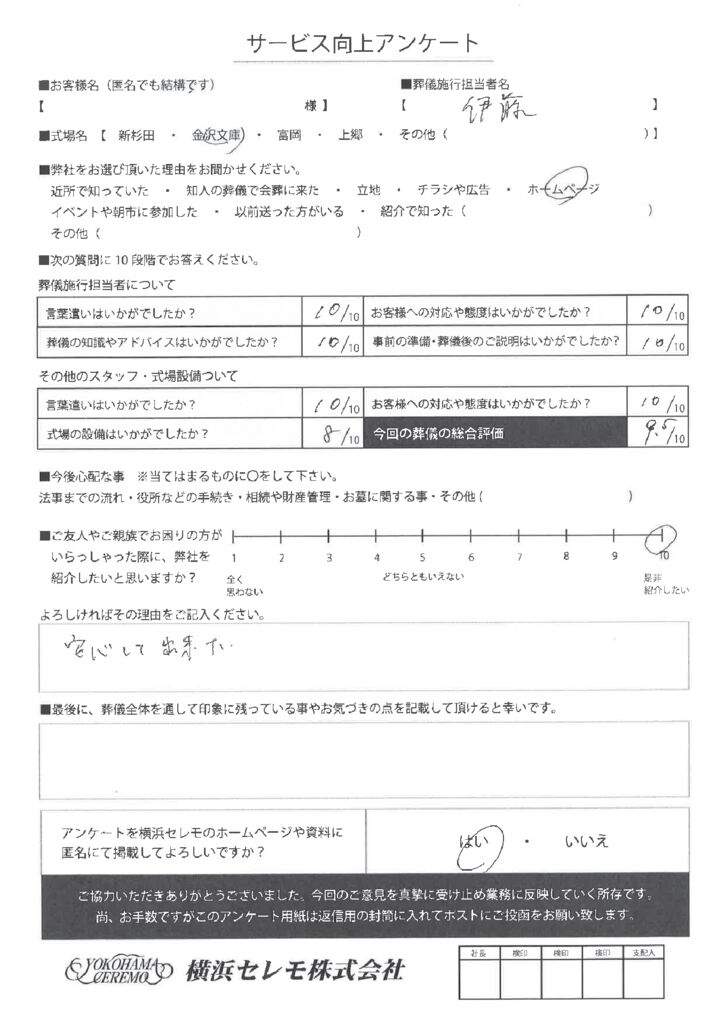 サービス向上アンケート
■お客様名（匿名でも結構です）　■葬儀施行担当者名
【　様】　【　伊藤　】
■式場名【　新杉田　・　金沢文庫　・　富岡　・　上郷　・　その他（　）】
■弊社をお選び頂いた理由をお聞かせください。
近所で知っていた　・　知人の葬儀で会葬に来た　・　立地　・　チラシや広告　・　ホームページ
イベントや朝市に参加した　・　以前送った方がいる　・　紹介で知った（　）
その他（　）
■次の質問に10段階でお答えください。
葬儀施行担当者について
言葉遣いはいかがでしたか？　10/10　お客様への対応や態度はいかがでしたか？　10/10
葬儀の知識やアドバイスはいかがでしたか？　10/10　事前の準備・葬儀後のご説明はいかがでしたか？　10/10
その他のスタッフ・式場設備ついて
言葉遣いはいかがでしたか？　10/10　お客様への対応や態度はいかがでしたか？　10/10
式場の設備はいかがでしたか？　8/10　今回の葬儀の総合評価　9.5/10
■今後心配な事　※当てはまるものに〇をして下さい。
法事までの流れ・役所などの手続き・相続や財産管理・お墓に関する事・その他（　）
■ご友人やご親族でお困りの方が
いらっしゃった際に、弊社を
紹介したいと思いますか？
1 2 3 4 5 6 7 8 9 10
全く思わない　どちらともいえない　是非紹介したい
よろしければその理由をご記入ください。
安心して出来た
■最後に、葬儀全体を通して印象に残っている事やお気づきの点を記載して頂けると幸いです。
アンケートを横浜セレモのホームページや資料に
匿名にて掲載してよろしいですか？
はい　・　いいえ
ご協力いただきありがとうございました。今回のご意見を真摯に受け止め業務に反映していく所存です。
尚、お手数ですがこのアンケート用紙は返信用の封筒に入れてポストにご投函をお願い致します。
YOKOHAMA CEREMO　横浜セレモ株式会社
社長　検印　検印　検印　支配人